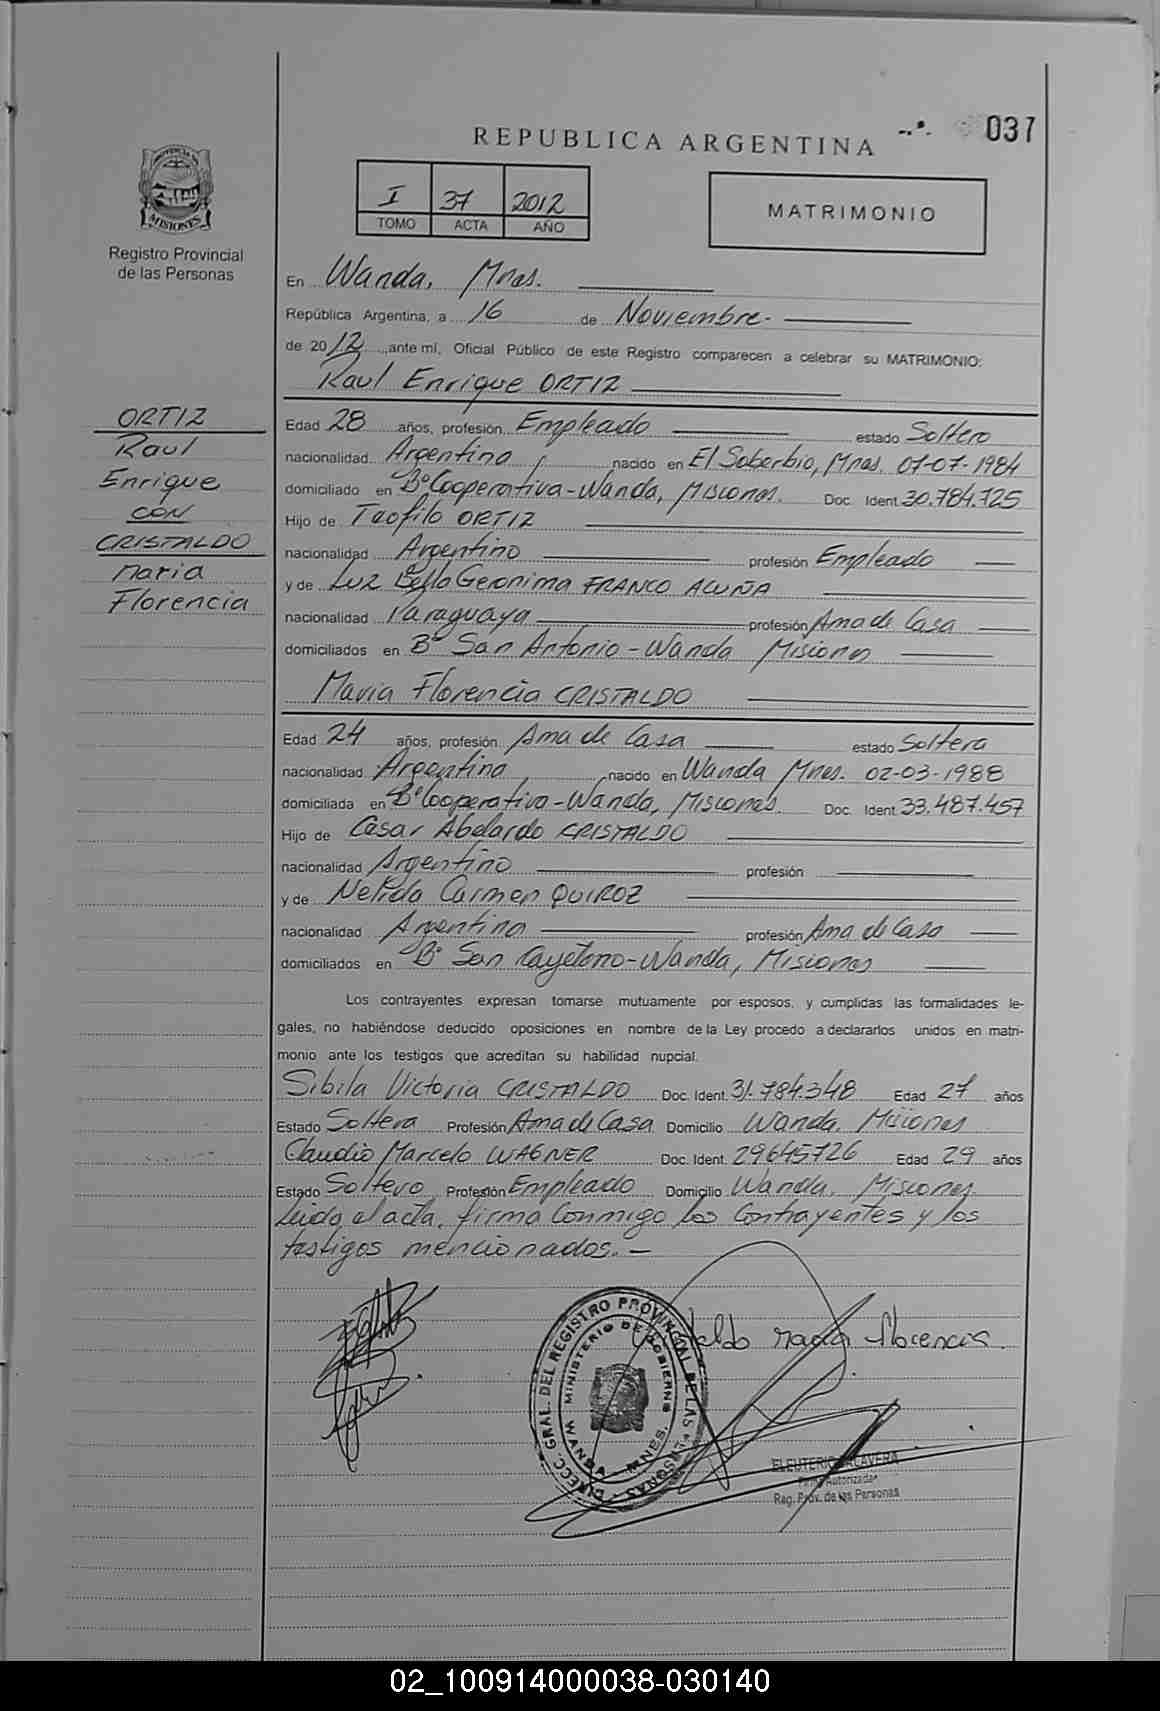 037
REPUBLICA ARGENTINA
I 37 2012
TOMO ACTA AÑO
MATRIMONIO
PROVINCIA DE
MISIONES
Registro Provincial
de las Personas
En Wanda, Mnes.
República Argentina, a 16 de Noviembre.
de 2012, ante mí, Oficial Público de este Registro comparecen a celebrar su MATRIMONIO:
Raul Enrique ORTIZ
ORTIZ
Raul
Enrique
CON
CRISTALDO
Maria
Florencia
Edad 28 años, profesión Empleado estado Soltero
nacionalidad Argentino, nacido en El Soberbio, Mnes. 07-07-1984
domiciliado en B° Cooperativa - Wanda, Misiones. Doc. Ident. 30.784.725
Hijo de Teofilo ORTIZ
nacionalidad Argentino profesión Empleado
y de Luz Bella Geronima FRANCO ACUÑA
nacionalidad Paraguaya profesión Ama de Casa
domiciliados en B° San Antonio - Wanda Misiones
Maria Florencia CRISTALDO
Edad 24 años, profesión Ama de Casa estado Soltera
nacionalidad Argentina, nacido en Wanda Mnes. 02-03-1988
domiciliada en B° Cooperativa - Wanda, Misiones. Doc. Ident. 33.487.457
Hijo de Cesar Abelardo CRISTALDO
nacionalidad Argentino profesión
y de Nelida Carmen QUIROZ
nacionalidad Argentina profesión Ama de Casa
domiciliados en B° San Cayetano - Wanda, Misiones
Los contrayentes expresan tomarse mutuamente por esposos, y cumplidas las formalidades le-
gales, no habiéndose deducido oposiciones en nombre de la Ley procedo a declararlos unidos en matri-
monio ante los testigos que acreditan su habilidad nupcial.
Sibila Victoria CRISTALDO Doc. Ident. 31.784.348 Edad 27 años
Estado Soltera Profesión Ama de Casa Domicilio Wanda, Misiones
Claudio Marcelo WAGNER Doc. Ident. 29.645.726 Edad 29 años
Estado Soltero Profesión Empleado Domicilio Wanda, Misiones
Leida el acta, firma conmigo los contrayentes y los
testigos mencionados.-
Maria florencia.
DIRECC. GRAL. DEL REGISTRO PROVINCIAL DE LAS PERSONAS
MINISTERIO DE GOBIERNO
WANDA - MNES.
ELEUTERIO TALAVERA
Autorizada
Reg. Prov. de las Personas
02_100914000038-030140